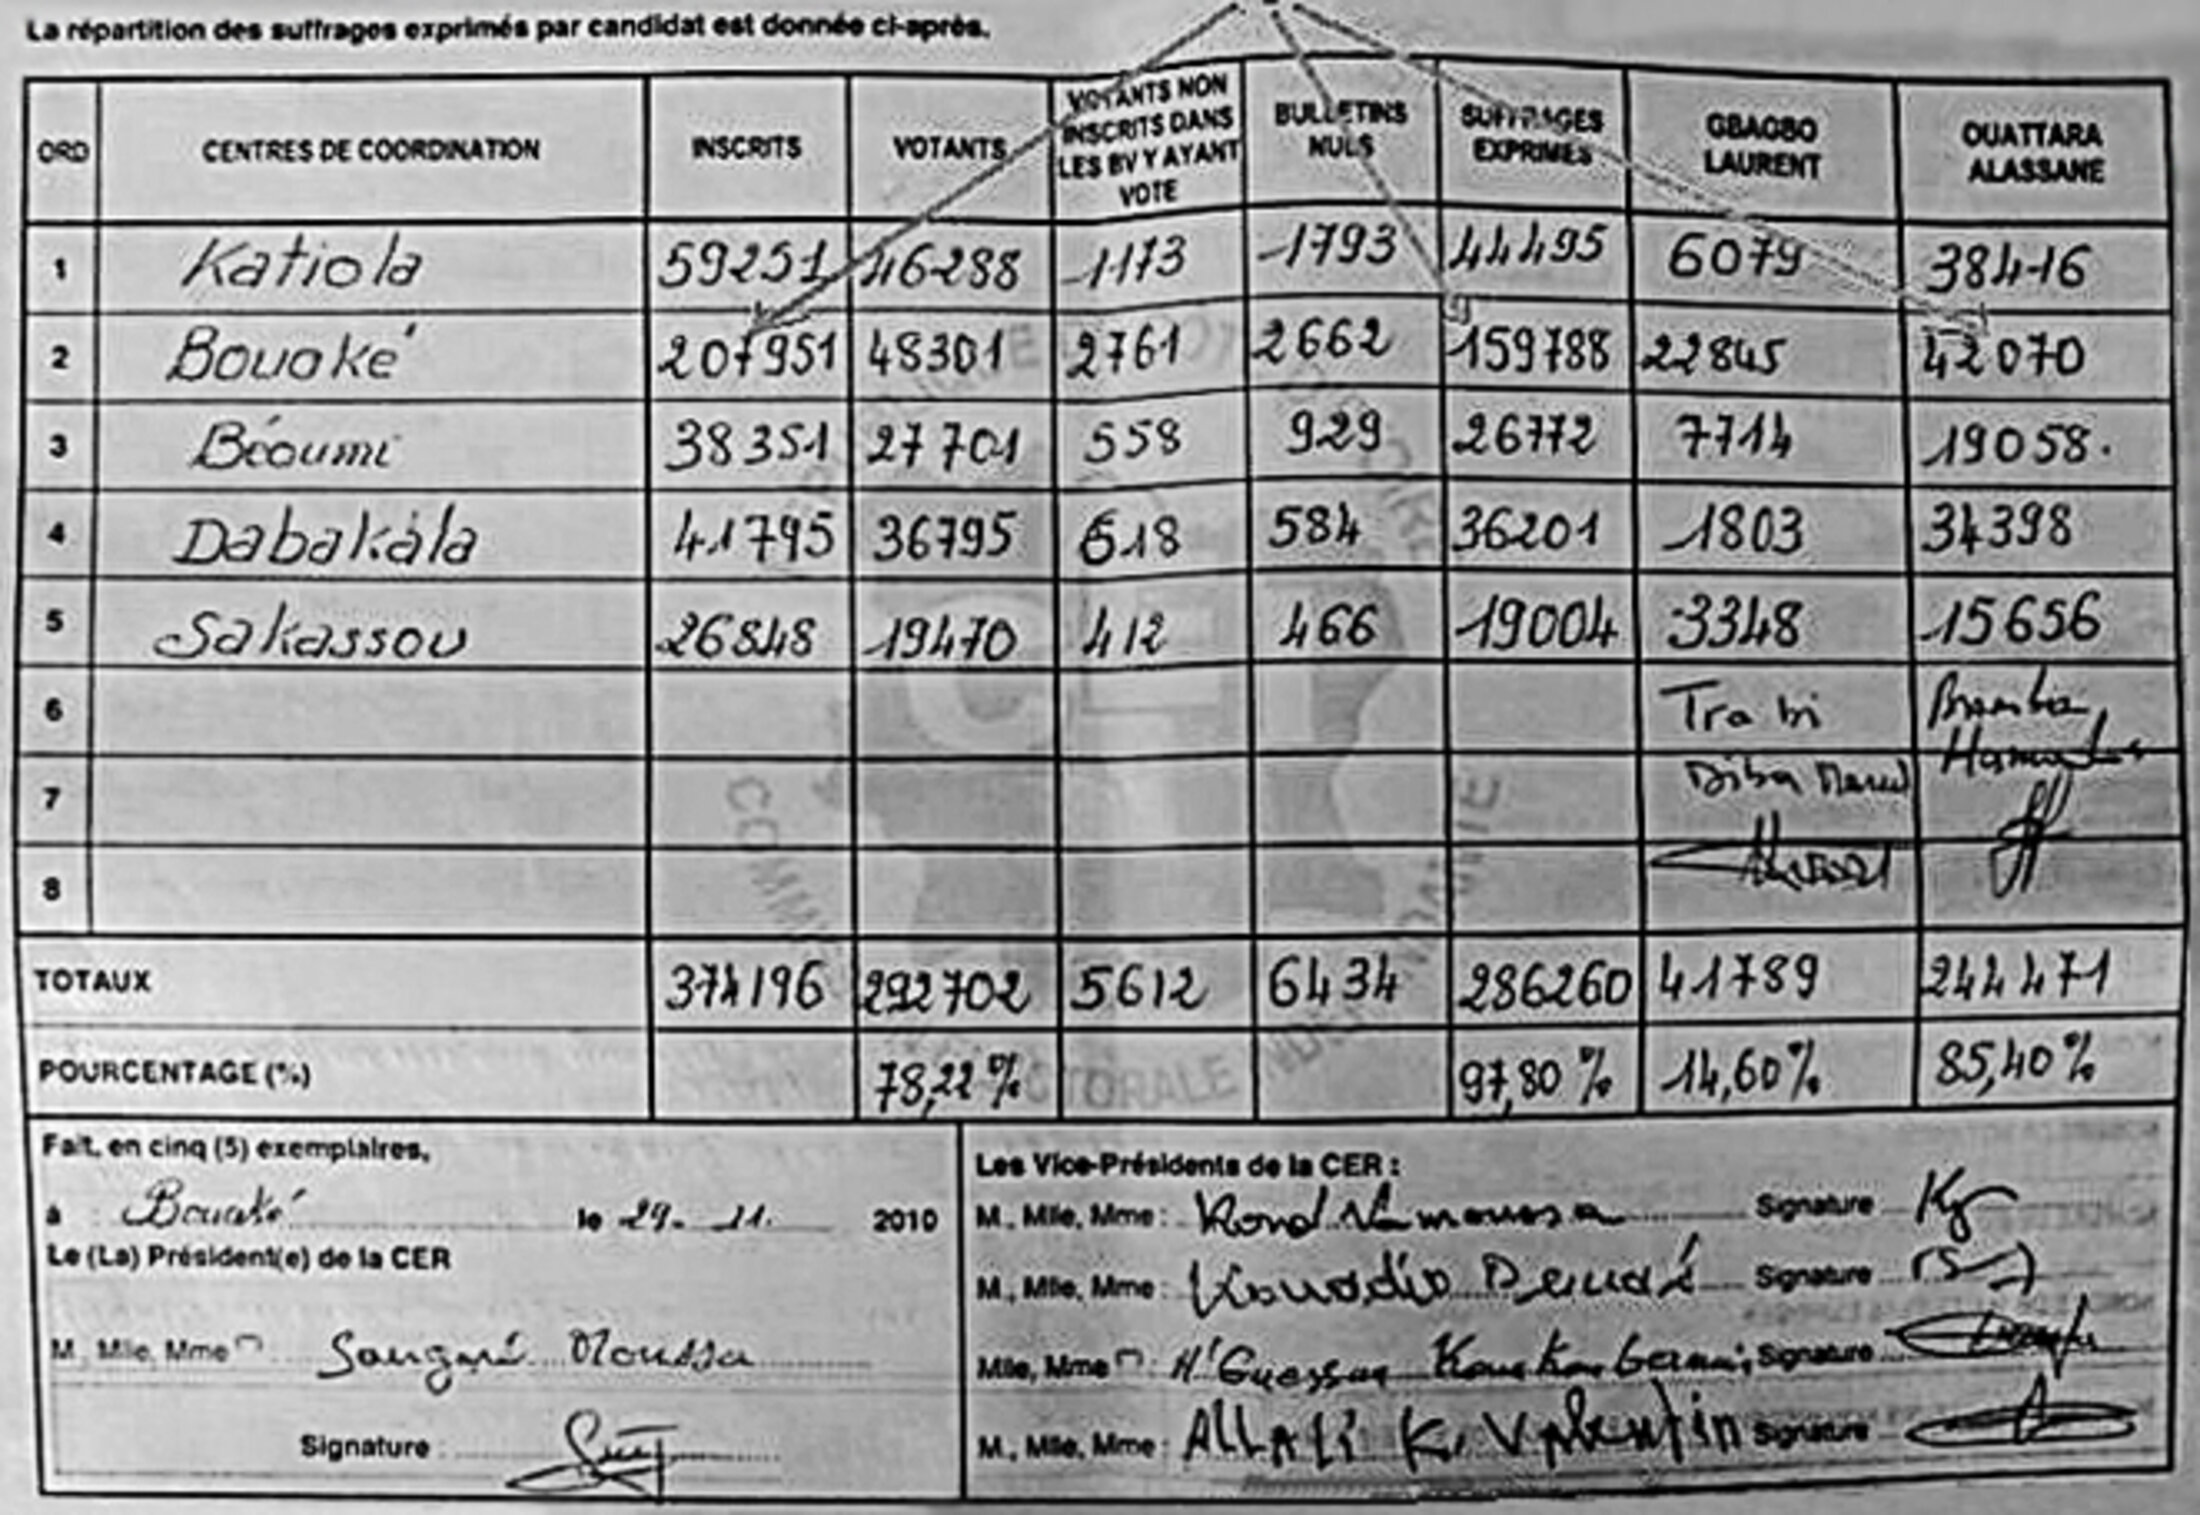 La répartition des suffrages exprimés par candidat est donnée ci-après.
ORD CENTRES DE COORDINATION INSCRITS VOTANTS VOTANTS NON INSCRITS DANS LES BV Y AYANT VOTE BULLETINS NULS SUFFRAGES EXPRIMES GBAGBO LAURENT OUATTARA ALASSANE
1 Katiola 59251 46288 1173 1793 44495 6079 38416
2 Bouaké 207951 48301 2761 2662 159788 22845 42070
3 Béoumi 38351 27701 558 929 26772 7714 19058.
4 Dabakala 41795 36795 618 584 36201 1803 34398
5 Sakassou 26848 19470 412 466 19004 3348 15656
6 Tra bi
7
8
TOTAUX 374196 292702 5612 6434 286260 41789 244471
POURCENTAGE (%) 78,22% 97,80% 14,60% 85,40%
Fait, en cinq (5) exemplaires,
à Bouaké le 29. 11. 2010
Le (La) Président(e) de la CER
M, Mlle, Mme Sangaré Moussa
Signature
Les Vice-Présidents de la CER :
M, Mlle, Mme : Signature
M, Mlle, Mme : Kouadio Signature
Mlle, Mme : N'Guessan Signature
M, Mlle, Mme : ALLALI K. Valentin Signature
COMM